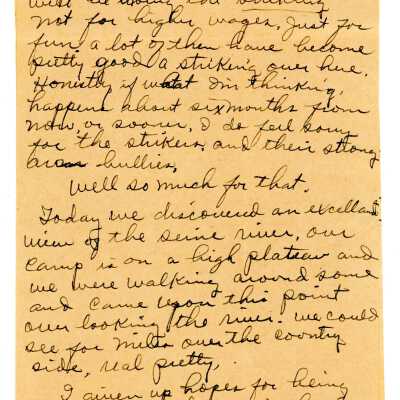 not for higher wages, Just for
fun, a lot of them have become
pretty good a striking over here.
Honestly if what I'm thinking,
happens about six months from
now or sooner, I do feel sorry
for the strikers, and their strong
arm bullies.
Well so much for that.
Today we discovered an excellant
view of the seine river, our
camp is on a high plateau and
we were walking around some
and came upon this point
over looking the river. we could
see for miles over the country
side, real pretty.
I given up hopes for being